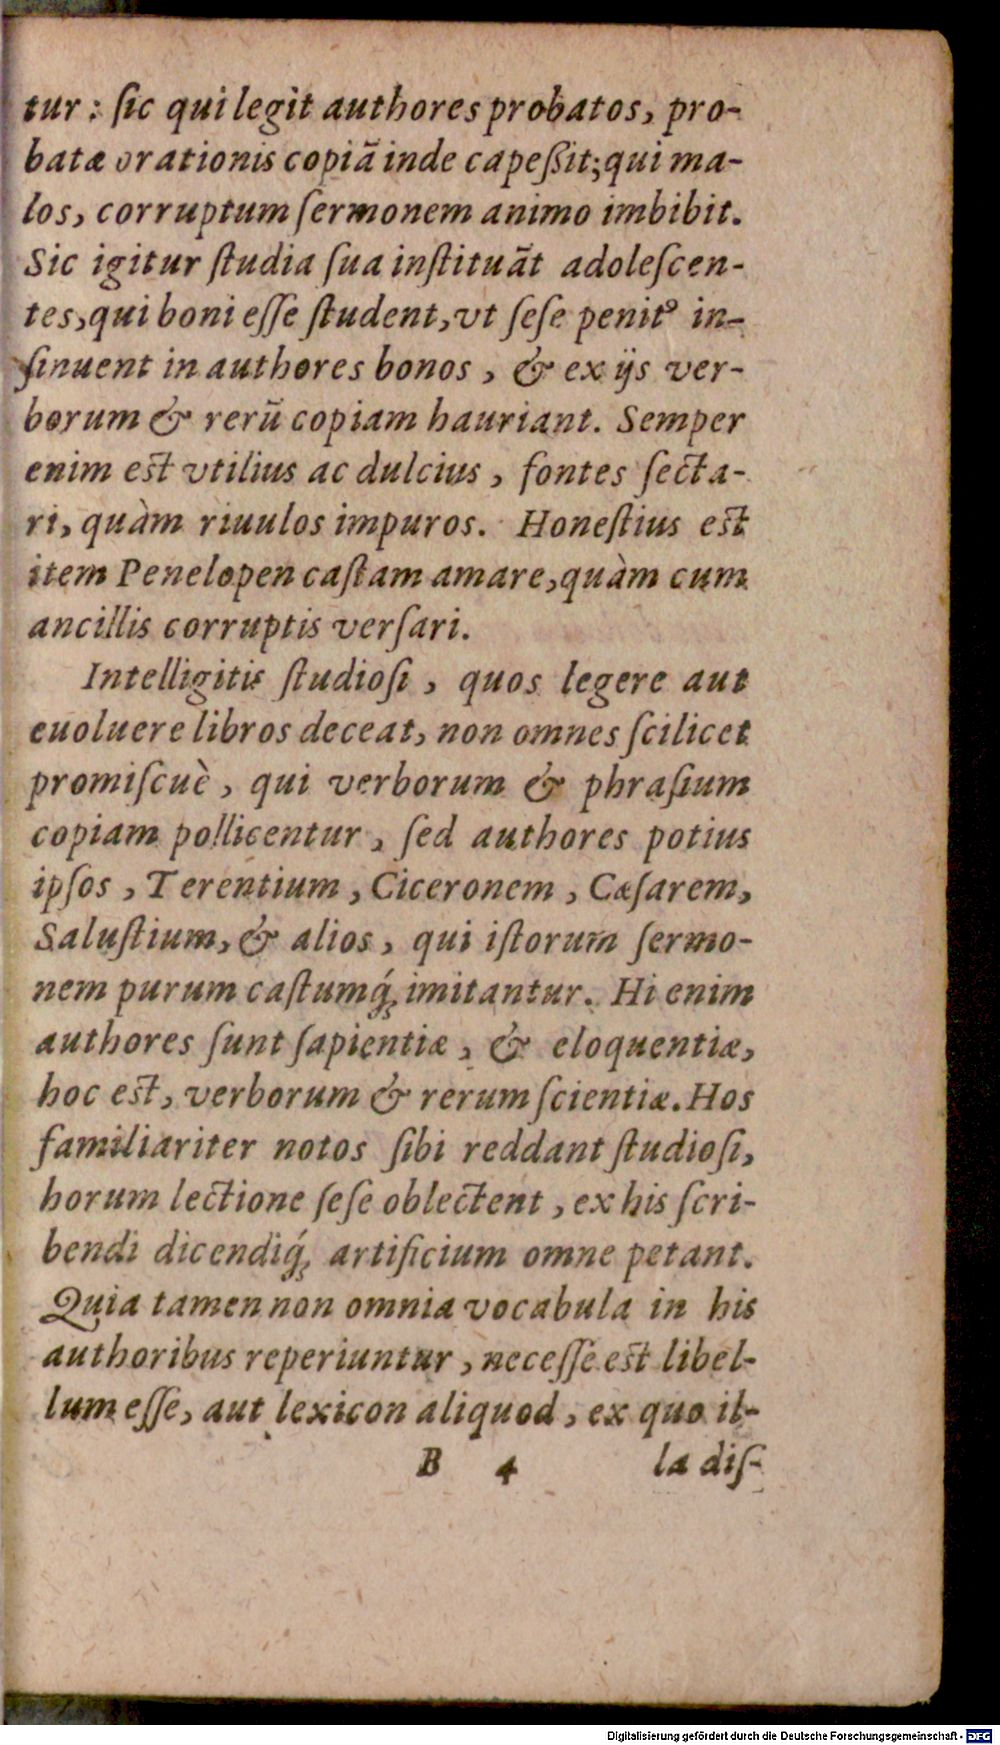 tur: ſic qui legit authores probatos, pro-
batæ orationis copiã inde capeßit; qui ma-
los, corruptum ſermonem animo imbibit.
Sic igitur ſtudia ſua inſtituãt adoleſcen-
tes, qui boni eſſe ſtudent, vt ſeſe penitꝰ in-
ſinuent in authores bonos, & ex ijs ver-
borum & rerũ copiam hauriant. Semper
enim est vtilius ac dulcius, fontes ſecta-
ri, quàm riuulos impuros. Honeſtius est
item Penelopen caſtam amare, quàm cum
ancillis corruptis verſari.
Intelligitis ſtudioſi, quos legere aut
euoluere libros deceat, non omnes ſcilicet
promiſcuè, qui verborum & phraſium
copiam pollicentur, ſed authores potius
ipſos, Terentium, Ciceronem, Cæſarem,
Saluſtium, & alios, qui iſtorum ſermo-
nem purum caſtumq́; imitantur. Hi enim
authores ſunt ſapientiæ, & eloquentiæ,
hoc est, verborum & rerum ſcientiæ. Hos
familiariter notos ſibi reddant ſtudioſi,
horum lectione ſeſe oblectent, ex his ſcri-
bendi dicendiq́; artificium omne petant.
Quia tamen non omnia vocabula in his
authoribus reperiuntur, neceſſe est libel-
lum eſſe, aut lexicon aliquod, ex quo il-
B 4 la diſ-
Digitalisierung gefördert durch die Deutsche Forschungsgemeinschaft - DFG